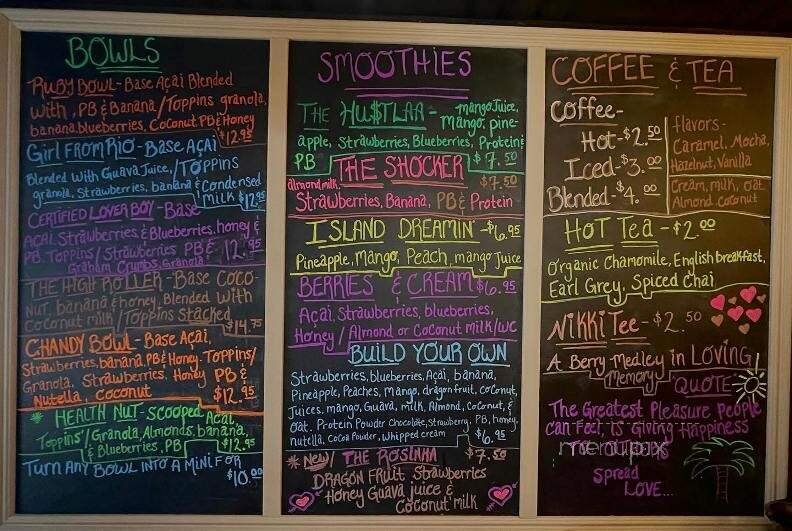 BOWLS
RUBY BOWL - Base Açai Blended
with, PB & Banana / Toppins granola,
banana, blueberries, Coconut PB & Honey
$12.95
Girl From Rio - Base Açai
Blended with Guava Juice, / TOPPINS
granola, Strawberries, banana & Condensed
milk $12.95
CERTIFIED LOVER BOY - Base
Açai Strawberries & Blueberries, honey &
PB. Toppins / Strawberries PB & 12.95
Graham Crumbs, Granola
THE HIGH ROLLER - Base Coco-
nut, banana & honey, Blended with
Coconut milk / Toppins Stacked
$14.75
CHANDY BOWL - Base Açai,
Strawberries, banana, PB & Honey - Toppins/
Granola, Strawberries, Honey PB &
Nutella, Coconut $12.95
* HEALTH NUT - Scooped Açai
Toppins / Granola, Almonds, banana,
& Blueberries, PB $12.95
Turn Any Bowl INTO A MINI FOR
$10.00
SMOOTHIES
THE HU$TLAA - mango Juice,
mango, pine-
apple, Strawberries, Blueberries, Protein &
PB $7.50
THE SHOCKER
almond milk, $7.50
Strawberries, Banana, PB & Protein
ISLAND DREAMIN' - $6.95
Pineapple, Mango, Peach, mango Juice
BERRIES & CREAM $6.95
Açai, Strawberries, blueberries,
Honey / Almond or Coconut milk/WC
BUILD YOUR OWN
Strawberries, blueberries, Açai, banana,
Pineapple, Peaches, Mango, dragon fruit, coconut,
Juices, mango, Guava, milk, Almond, Coconut, &
Oat. Protein Powder Chocolate, Strawberry. PB, honey,
nutella, Cocoa Powder, Whipped cream $6.95
* NEW/ THE ROSINHA $7.50
DRAGON FRUIT Strawberries
Honey Guava juice &
Coconut milk
COFFEE & TEA
Coffee-
Hot - $2.50
Iced - $3.00
Blended - $4.00
Flavors -
Caramel, Mocha,
Hazelnut, Vanilla
Cream, milk, oat,
Almond, coconut
HOT Tea - $2.00
Organic Chamomile, English breakfast,
Earl Grey, Spiced Chai
NIKKI Tee - $2.50
A Berry Medley in LOVING
Memory
QUOTE
The Greatest Pleasure People
Can Feel, is Giving Happiness
To Others
menupix
Spread
LOVE...